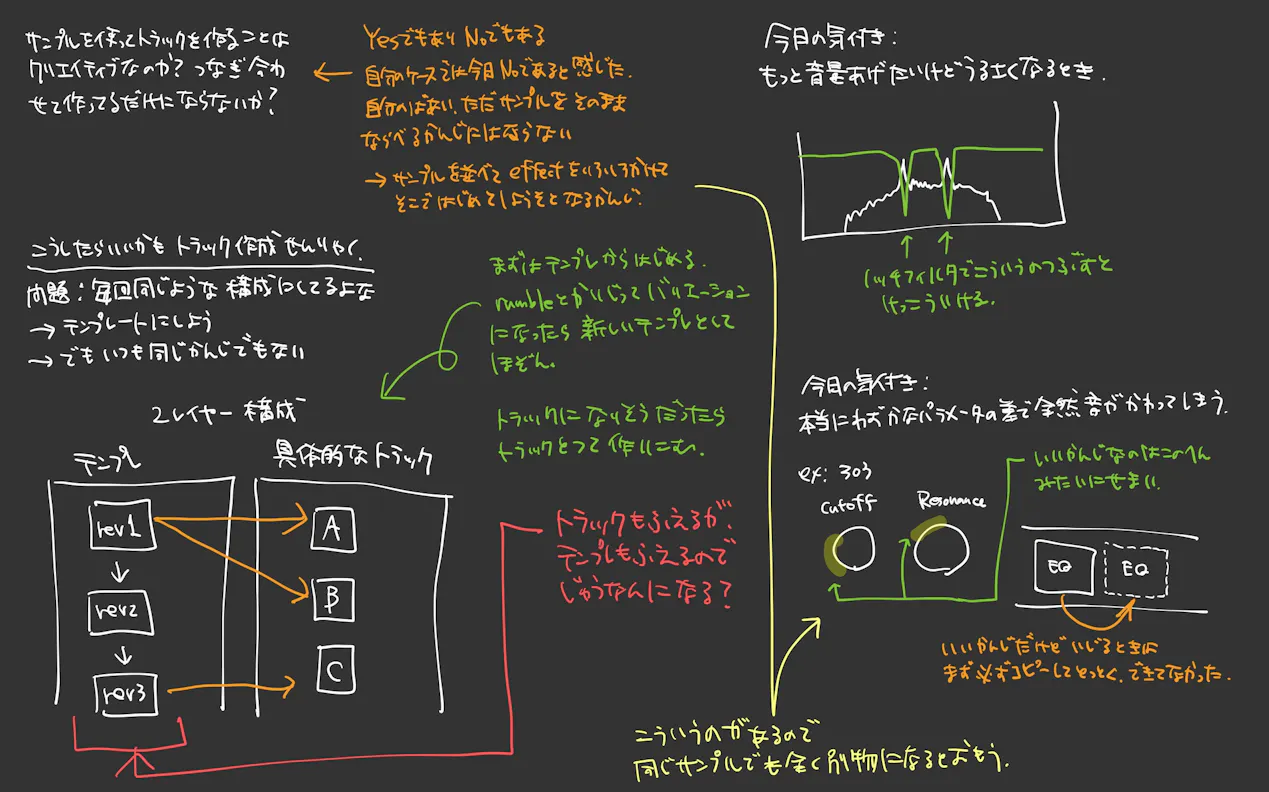 サンプルを使ってトラックを作ることは
クリエイティブなのか？つなぎ合わ
せて作ってるだけにならないか？
Yesでもあり Noでもある
自分のケースでは今日Noであると感じた.
自分のばあい、ただサンプルを そのまま
ならべるかんじにはならない
→ サンプルを並べて effectをいろいろかけて
そこではじめてしようそとなるかんじ.
こうしたらいいかも トラック作成 せんりゃく.
問題：毎回同じような 構成にしてるよな
→ テンプレートにしよう
→ でも いつも同じかんじでもない
まずはテンプレからはじめる.
rumbleとかいじって バリエーション
になったら 新しいテンプレとして
ほぞん.
トラックに なりそうだったら
トラックとって 作りこむ.
2レイヤー 構成
テンプレ
具体的なトラック
rev1
rev2
rev3
A
B
C
トラックもふえるが、
テンプレもふえるので
じゅうなんになる？
今日の気付き：
もっと音量あげたいけどうるさくなるとき.
ノッチフィルタでこういうのつぶすと
けっこういける.
今日の気付き：
本当にわずかなパラメータの差で全然音がかわってしまう.
ex: 303
Cutoff
Resonance
いいかんじなのはこのへん
みたいにせまい.
EQ
EQ
いいかんじだけど いじるときは
まず必ずコピーしてとっとく. できてなかった.
こういうのがあるので
同じサンプルでも全く別物になるとおもう.